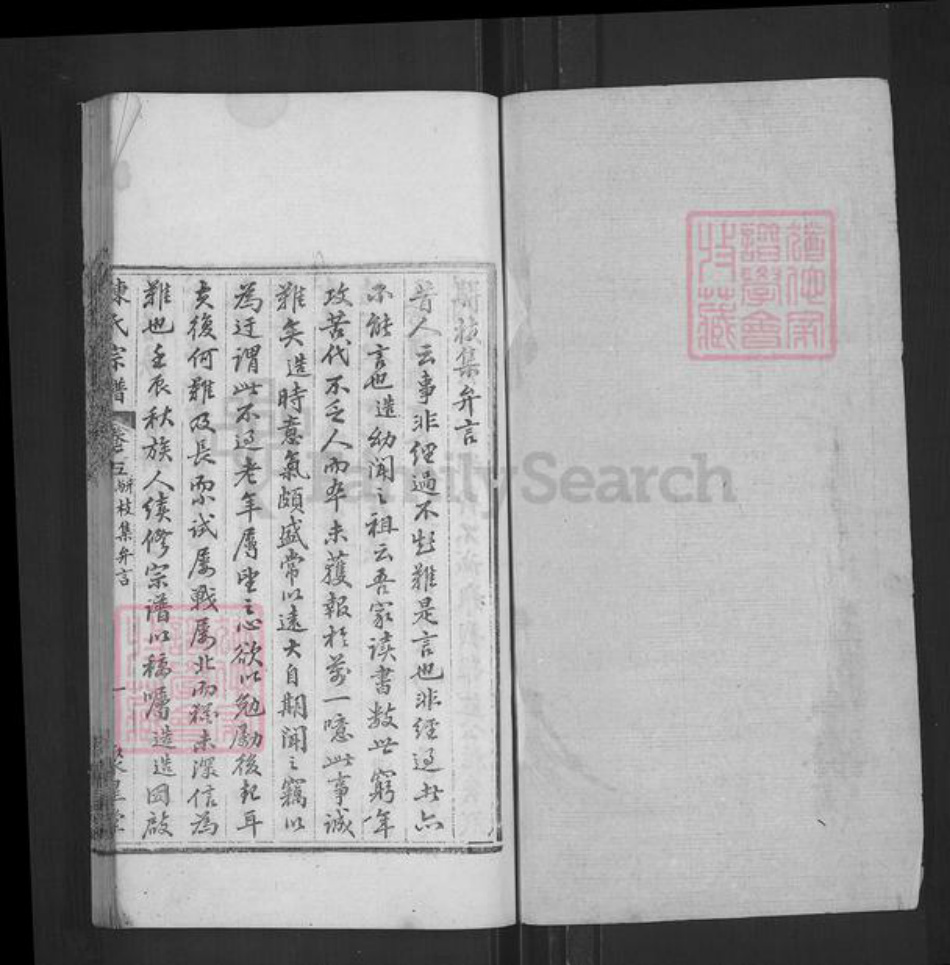 駢枝集弁言
昔人云事非經過不知難是言也非經過者亦
不能言也造幼聞之祖云吾家读書数世窮年
攻苦代不乏人而卒未獲報於萬一噫此事誠
難矣造時意氣頗盛常以遠大自期聞之竊以
為迂謂此不過老年厚望之心欲以勉勵後起耳
夫復何難及長而小試屡戰屡北而猶未深信為
難也壬辰秋族人续修宗谱以稿囑造造因啟
陳氏宗譜
卷五駢枝集弁言
一
聚星堂
譜學會
FamilySearch